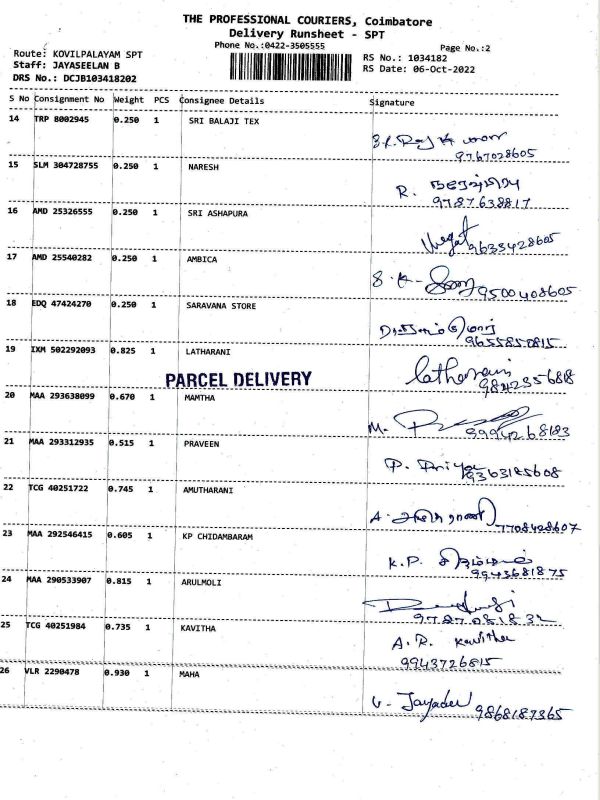 THE PROFESSIONAL COURIERS, Coimbatore
Delivery Runsheet - SPT
Phone No.:0422-3505555 Page No.:2
Route: KOVILPALAYAM SPT RS No.: 1034182
Staff: JAYASEELAN B RS Date: 06-Oct-2022
DRS No.: DCJB103418202
S No Consignment No Weight PCS Consignee Details Signature
14 TRP 8002945 0.250 1 SRI BALAJI TEX
9767028605
15 SLM 304728755 0.250 1 NARESH
R.
9787638817
16 AMD 25326555 0.250 1 SRI ASHAPURA
9633428605
17 AMD 25540282 0.250 1 AMBICA
S.K.
9500408605
18 EDQ 47424270 0.250 1 SARAVANA STORE
9655850815
19 IXM 502292093 0.825 1 LATHARANI
Latharani
9842356818
PARCEL DELIVERY
20 MAA 293638099 0.670 1 MAMTHA
M.
9994268183
21 MAA 293312935 0.515 1 PRAVEEN
P. Priya
9363185608
22 TCG 40251722 0.745 1 AMUTHARANI
A.
7708428607
23 MAA 292546415 0.605 1 KP CHIDAMBARAM
K.P.
9943681875
24 MAA 290533907 0.815 1 ARULMOLI
9787081832
25 TCG 40251984 0.735 1 KAVITHA
A.R. Kavitha
9943726815
26 VLR 2290478 0.930 1 MAHA
V. Jayadev
9868187365